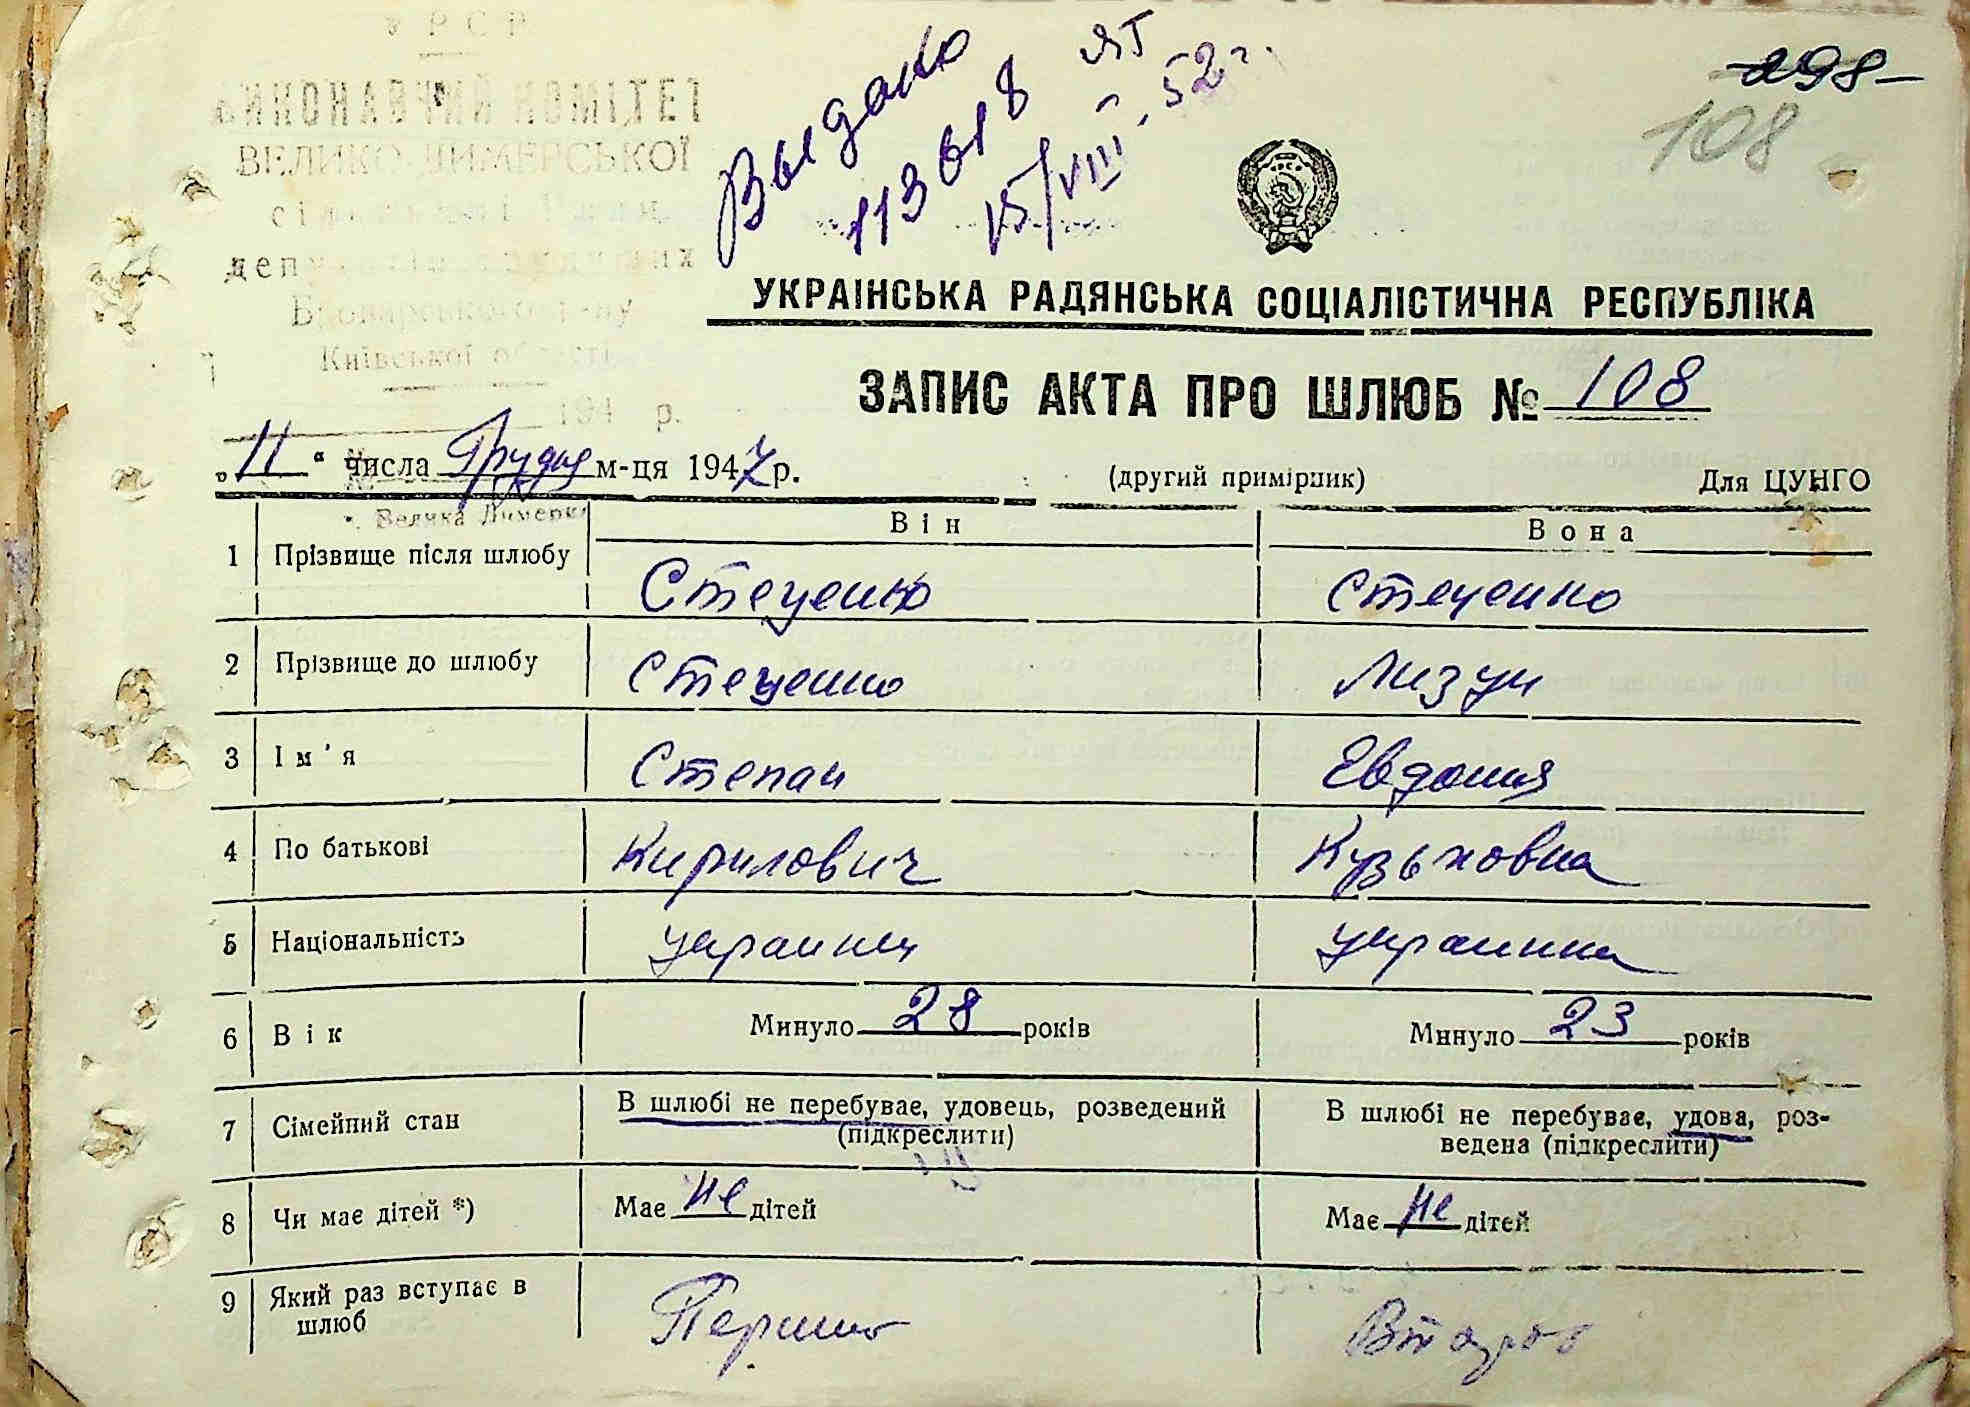 У Р С Р
ВИКОНАВЧИЙ КОМІТЕТ
ВЕЛИКО-ДИМЕРСЬКОЇ
депутатів трудящих
Броварського р-ну
Київської області
194 р.
с. Велика Димерка
Выдано
ЯТ
113618
15/VIII-52 г.
298
108
УКРАЇНСЬКА РАДЯНСЬКА СОЦІАЛІСТИЧНА РЕСПУБЛІКА
ЗАПИС АКТА ПРО ШЛЮБ № 108
„11“ числа Грудня м-ця 1947 р. (другий примірник) Для ЦУНГО
Він Вона
1 Прізвище після шлюбу Стеценко Стеценко
2 Прізвище до шлюбу Стеценко Лизун
3 Ім'я Степан Евдокия
4 По батькові Кирилович Кузьмовна
5 Національність украинец украинка
6 Вік Минуло 28 років Минуло 23 років
7 Сімейний стан В шлюбі не перебуває, удовець, розведений (підкреслити) В шлюбі не перебуває, удова, роз-
ведена (підкреслити)
8 Чи має дітей *) Має не дітей Має не дітей
9 Який раз вступає в
шлюб